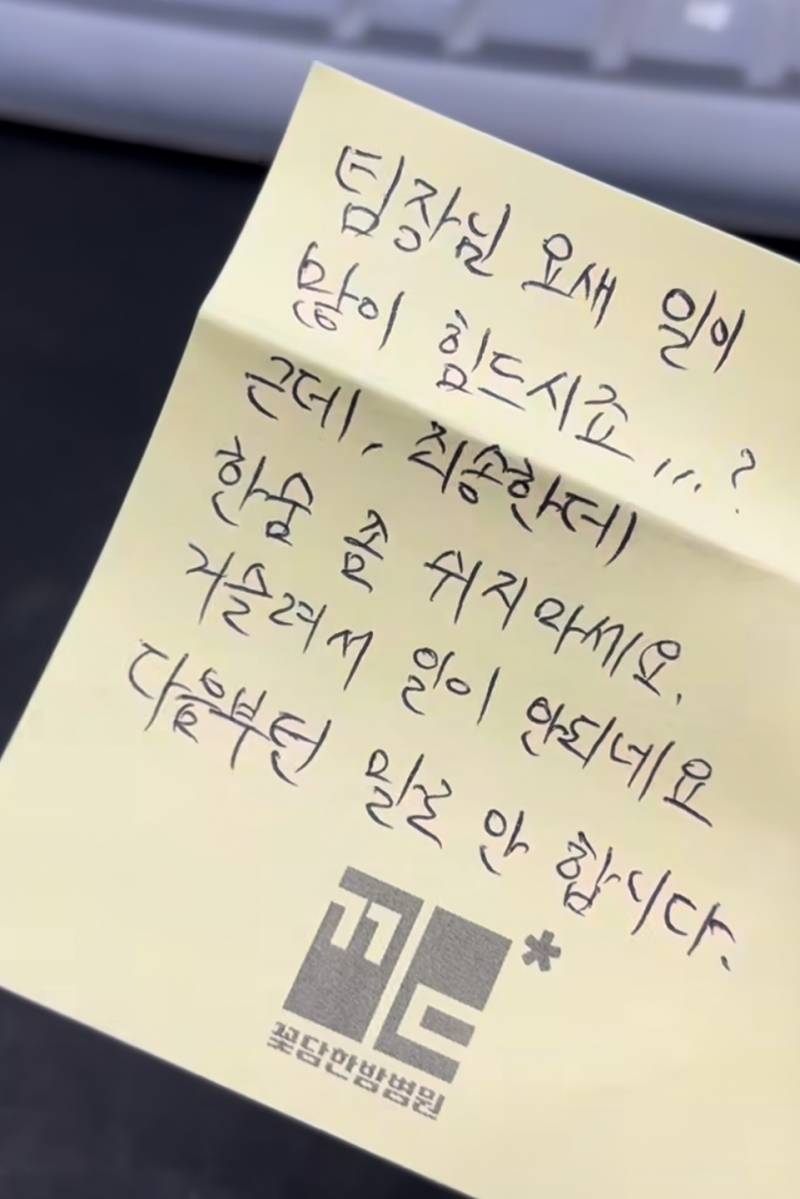 팀장님 요새 일이
많이 힘드시죠,,,?
근데, 죄송한데
한숨 좀 쉬지마세요.
거슬려서 일이 안되네요
다음부턴 말로 안 합니다.
꽃담한방병원